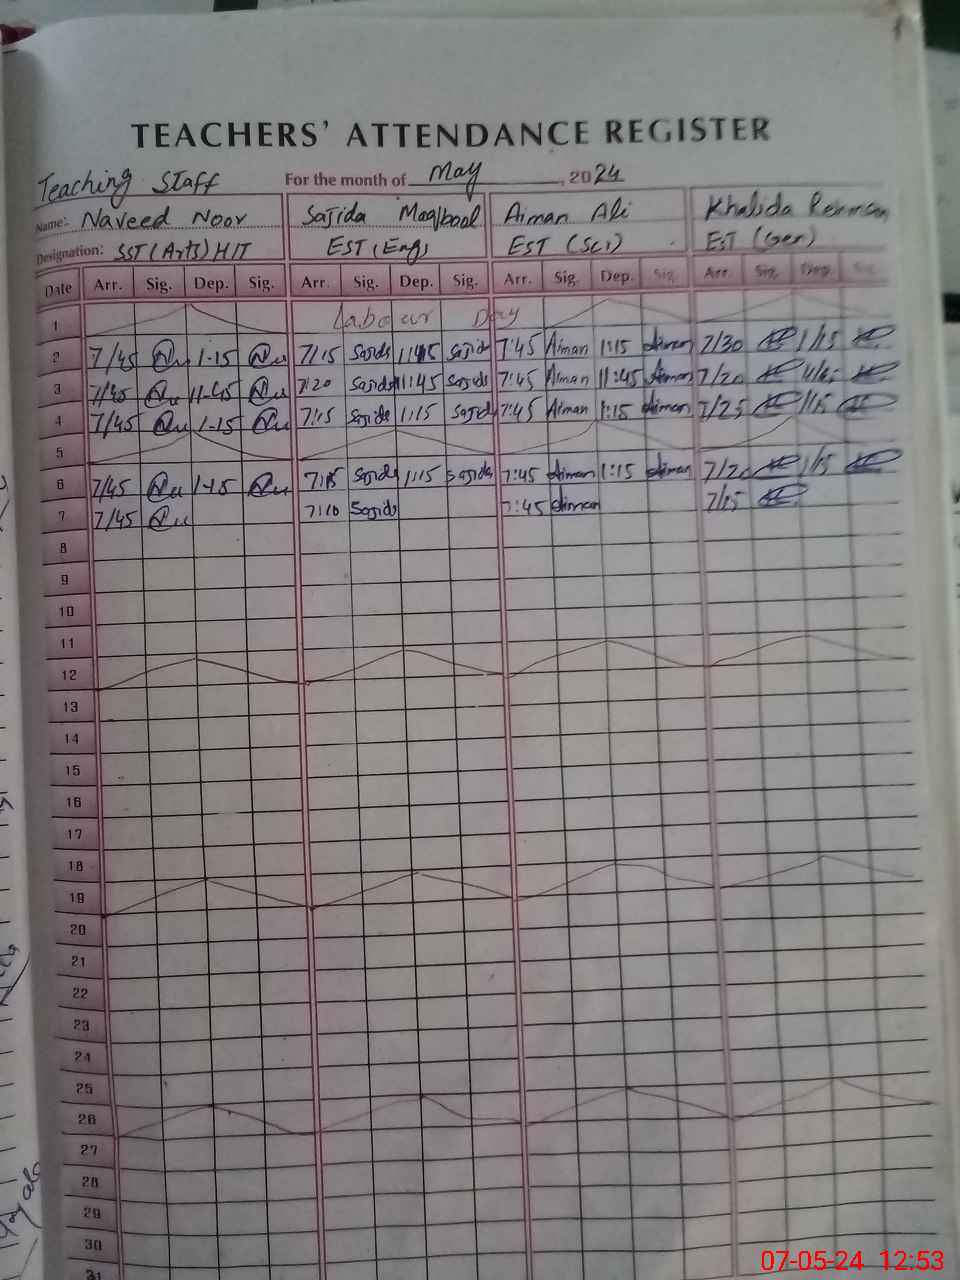 TEACHERS' ATTENDANCE REGISTER
Teaching Staff For the month of May, 2024
Name: Naveed Noor Sajida Maqbool Aiman Ali Khalida
Designation: SST (Arts) HIT EST (Eng) EST (Sci) EST (Gen)
Date Arr. Sig. Dep. Sig. Arr. Sig. Dep. Sig. Arr. Sig. Dep. Sig. Arr. Sig. Dep. Sig.
1 Labour Day
2 7/45 1-15 7/15 Sajida Sajida 7:45 Aiman 1:15 Aiman 7/30 1/15
3 7/45 11-45 7:20 Sajida 11:45 Sajida 7:45 Aiman 11:45 Aiman 7/20
4 7/45 1-15 7:15 Sajida 1:15 Sajida 7:45 Aiman 1:15 Aiman 7/25 1/15
5
6 7/45 1-15 7:15 Sajida 1:15 Sajida 7:45 Aiman 1:15 Aiman 7/20 1/15
7 7/45 7:10 Sajida 7:45 Aiman 7/15
8
9
10
11
12
13
14
15
16
17
18
19
20
21
22
23
24
25
26
27
28
29
30
31
07-05-24 12:53